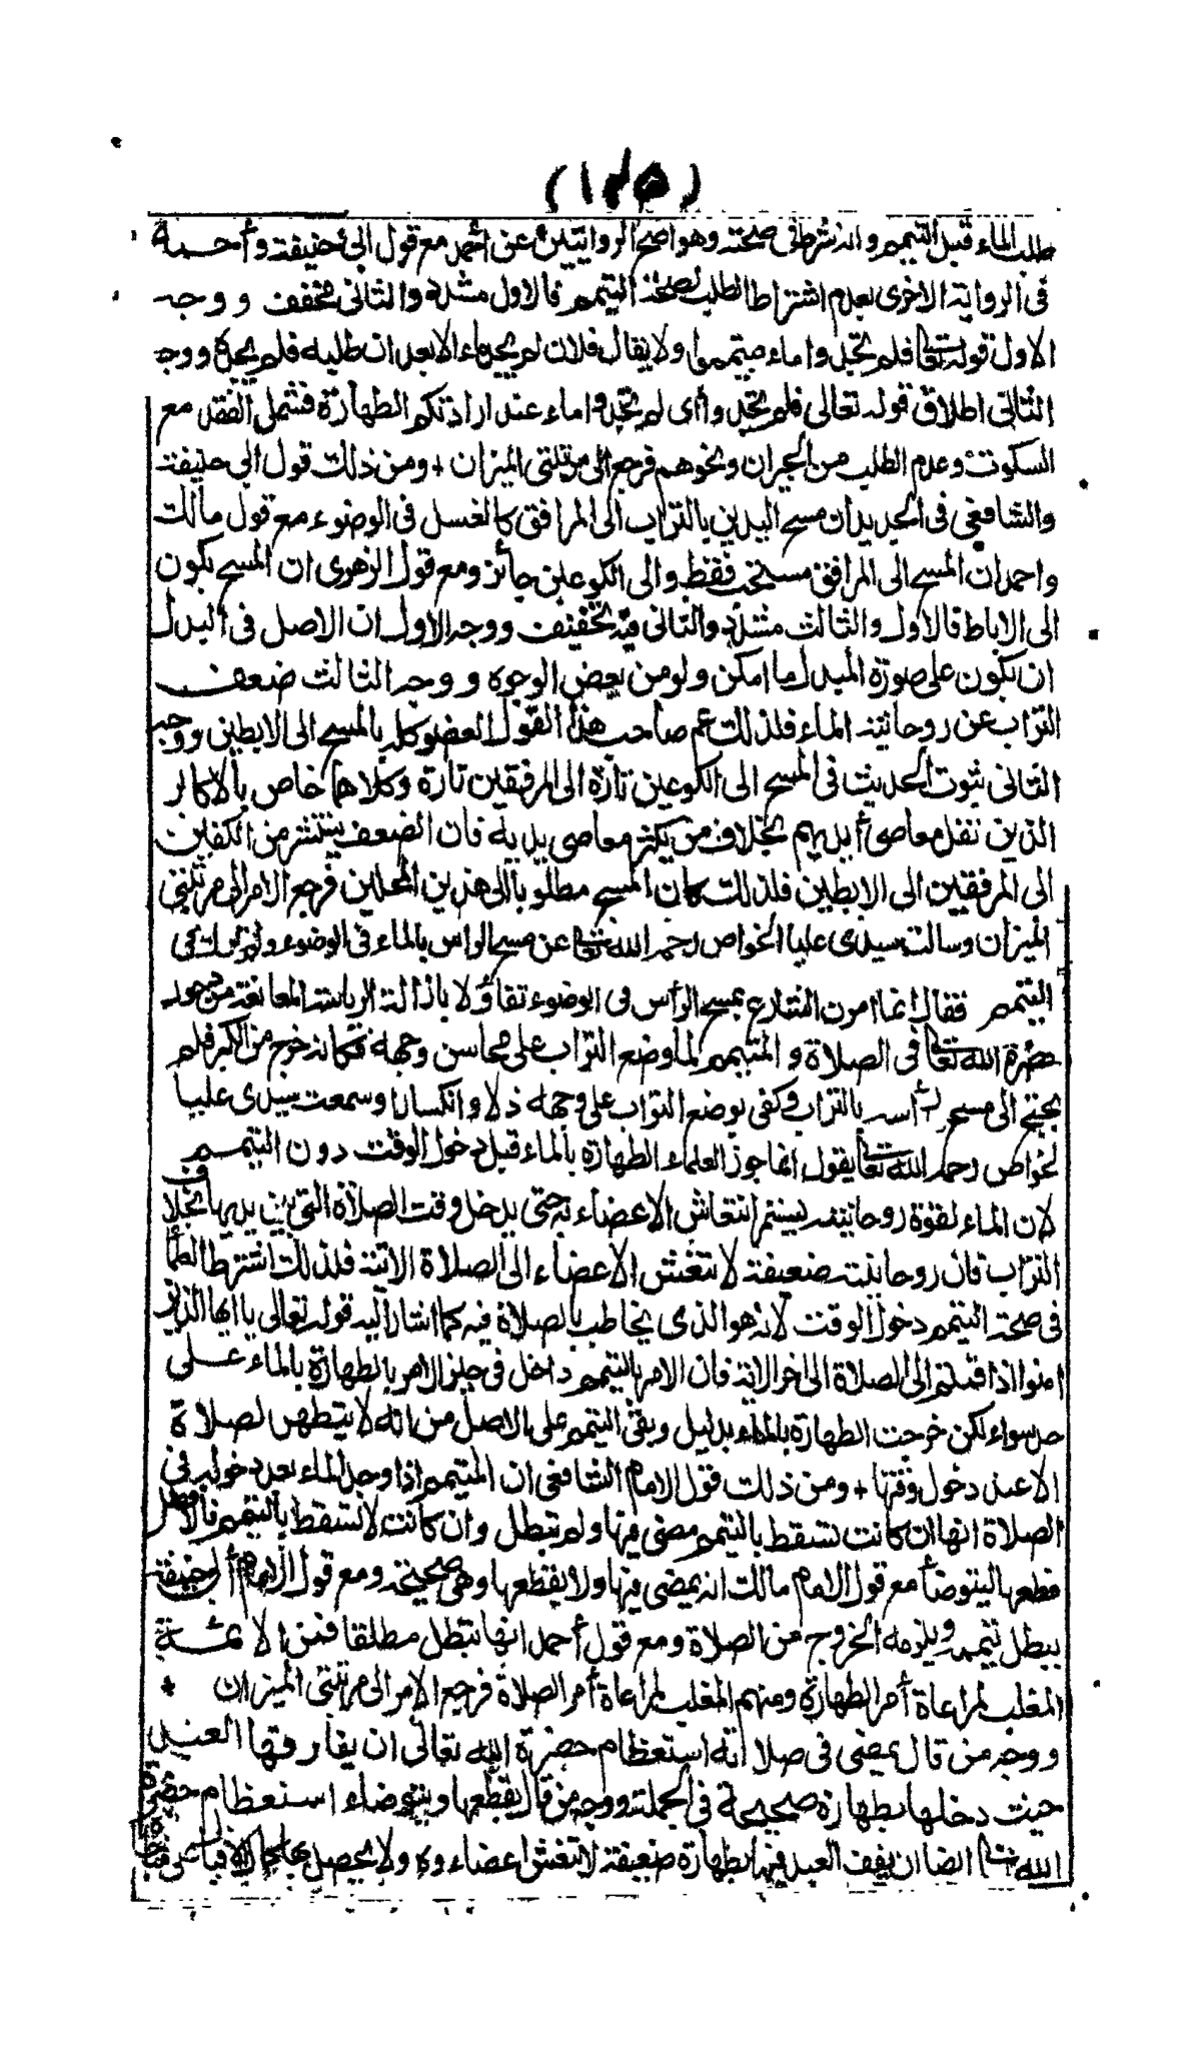 (١٢٥)
طلب الماء قبل التيمم وانه شرط فى صحته وهو اصح الروايتين عن أحمد مع قول ابى حنيفة وأحمد
فى الرواية الاخرى بعدم اشتراط الطلب لصحة التيمم فالاول مشدد والثانى مخفف ووجه
الاول قوله تعالى فلم تجدوا ماء فتيمموا ولا يقال فلان لم يجد ماء الا بعد ان طلبه فلم يجده ووجه
الثانى اطلاق قوله تعالى فلم تجدوا أى لم تجدوا ماء عند ارادتكم الطهارة فشمل الفقد مع
السكوت وعدم الطلب من الجيران ونحوهم فرجع الى مرتبتى الميزان + ومن ذلك قول ابى حنيفة
والشافعى فى الجديد ان مسح اليدين بالتراب الى المرافق كالغسل فى الوضوء مع قول مالك
واحمد ان المسح الى المرافق مستحب فقط والى الكوعين جائز ومع قول الزهرى ان المسح يكون
الى الاباط فالاول والثالث مشدد والثانى فيه تخفيف ووجه الاول ان الاصل فى البدل
ان يكون على صورة المبدل ما امكن ولو من بعض الوجوه ووجه الثالث ضعف
التراب عن روحانية الماء فلذلك عم صاحب هذا القول العضو كله بالمسح الى الابطين ووجه
الثانى ثبوت الحديث فى المسح الى الكوعين تارة الى المرفقين تارة وكلاهما خاص بالاكابر
الذين تقل معاصى أيديهم بخلاف من يكثر معاصى يديه فان الضعف ينتشر من الكفين
الى المرفقين الى الابطين فلذلك كان المسح مطلوبا الى هذين المحلين فرجع الامر الى مرتبتى
الميزان وسالت سيدى عليا الخواص رحمه الله تعالى عن مسح الراس بالماء فى الوضوء ولم ترك فى
التيمم فقال انما امرت الشارع بمسح الرأس فى الوضوء تفاؤلا بازالة الرياسة المانعة من دخول
حضرة الله تعالى فى الصلاة والمتيمم لما وضع التراب على محاسن وجهه فكانه خرج من الكبر فلم
يحتج الى مسح رأسه بالتراب وكفى بوضع التراب على وجهه ذلا وانكسارا وسمعت سيدى عليا
لخواص رحمه الله تعالى يقول انما جوز العلماء الطهارة بالماء قبل دخول الوقت دون التيمم
لان الماء لقوة روحانيته يستمر انتعاش الاعضاء به حتى يدخل وقت الصلاة التى بين يديها بخلاف
التراب فان روحانيته ضعيفة لا تنعش الاعضاء الى الصلاة الاتية فلذلك اشترط العلماء
فى صحة التيمم دخول الوقت لانه هو الذى يخاطب بالصلاة فيه كما اشار اليه قوله تعالى يا ايها الذين
امنوا اذا قمتم الى الصلاة الى اخر الاية فان الامر بالتيمم داخل فى حيز الامر بالطهارة بالماء على
حد سواء لكن خرجت الطهارة بالماء بدليل وبقى التيمم على الاصل من انه لا يتطهر لصلاة
الا عند دخول وقتها + ومن ذلك قول الامام الشافعى ان المتيمم اذا وجد الماء بعد دخوله فى
الصلاة انها ان كانت تسقط بالتيمم مضى فيها ولم تبطل وان كانت لا تسقط بالتيمم فالافضل
قطعها ليتوضأ مع قول الامام مالك انه يمضى فيها ولا يقطعها وهى صحيحة ومع قول الامام أبى حنيفة
يبطل تيممه ويلزمه الخروج من الصلاة ومع قول أحمد انها تبطل مطلقا فمن الائمة
المغلب لمراعاة أمر الطهارة ومنهم المغلب لمراعاة أمر الصلاة فرجع الامر الى مرتبتى الميزان *
ووجه من قال يمضى فى صلاته استعظام حضرة الله تعالى ان يفارقها العبد
حيث دخلها بطهارة صحيحة فى الجملة ووجه من قال يقطعها ويتوضاء استعظام حضرة
الله تعالى ايضا ان يقف العبد فيها بطهارة ضعيفة لا تنعش اعضاءه ولا يحصل بها كمال الاقبال على